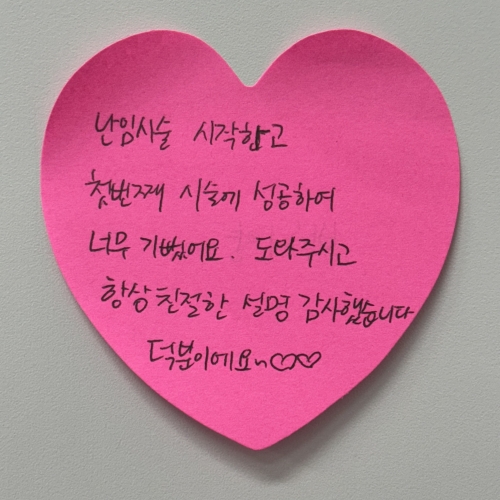 난임시술 시작하고
첫번째 시술에 성공하여
너무 기뻤어요. 도와주시고
항상 친절한 설명 감사했습니다
덕분이에요~♡♡